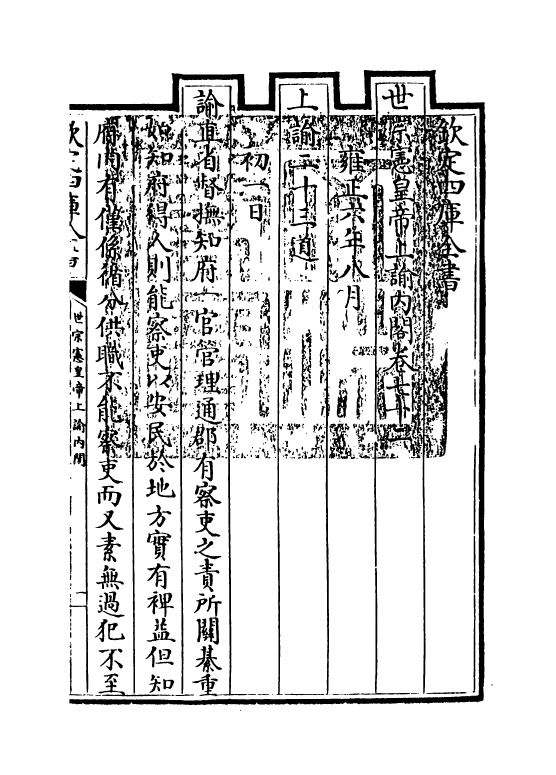 欽定四庫全書
世宗憲皇帝上諭內閣卷七十二
雍正六年八月
上諭二十三道
初一日
諭直省督撫知府一官管理通郡有察吏之責所關綦重
如知府得人則能察吏以安民於地方實有裨益但知
府內有僅係循分供職不能察吏而又素無過犯不至
欽定四庫全書
世宗憲皇帝上諭內閣